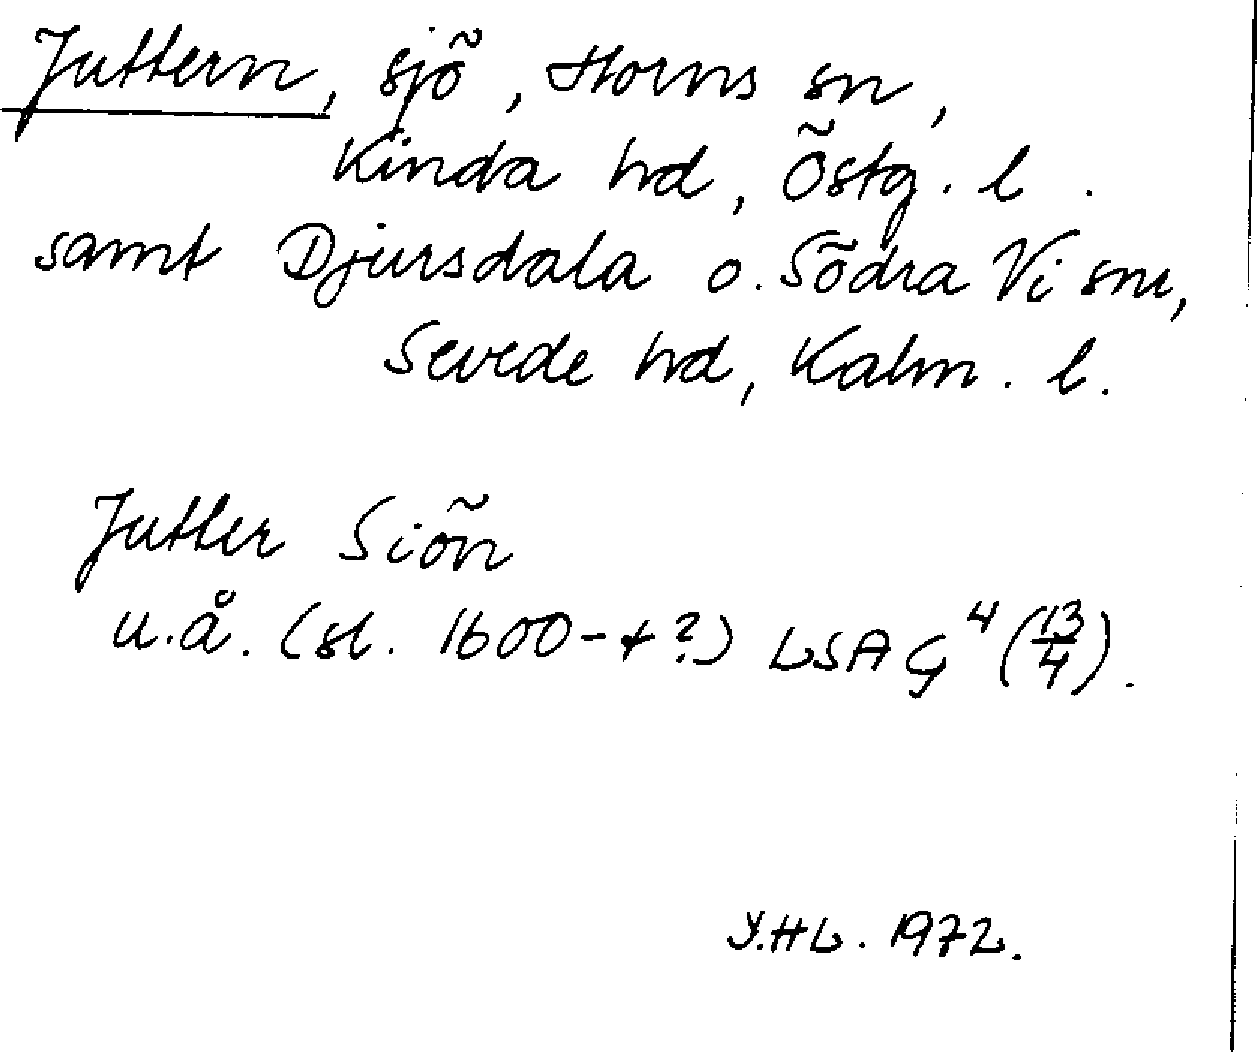 Juttern, sjö, Horns sn,
Kinda hd, Östg. l.
samt Djursdala o. Södra Vi snr,
Sevede hd, Kalm. l.
Jutter Siön
u.å. (sl. 1600-t?) LSA G⁴ (13/4).
Y.HL. 1972.